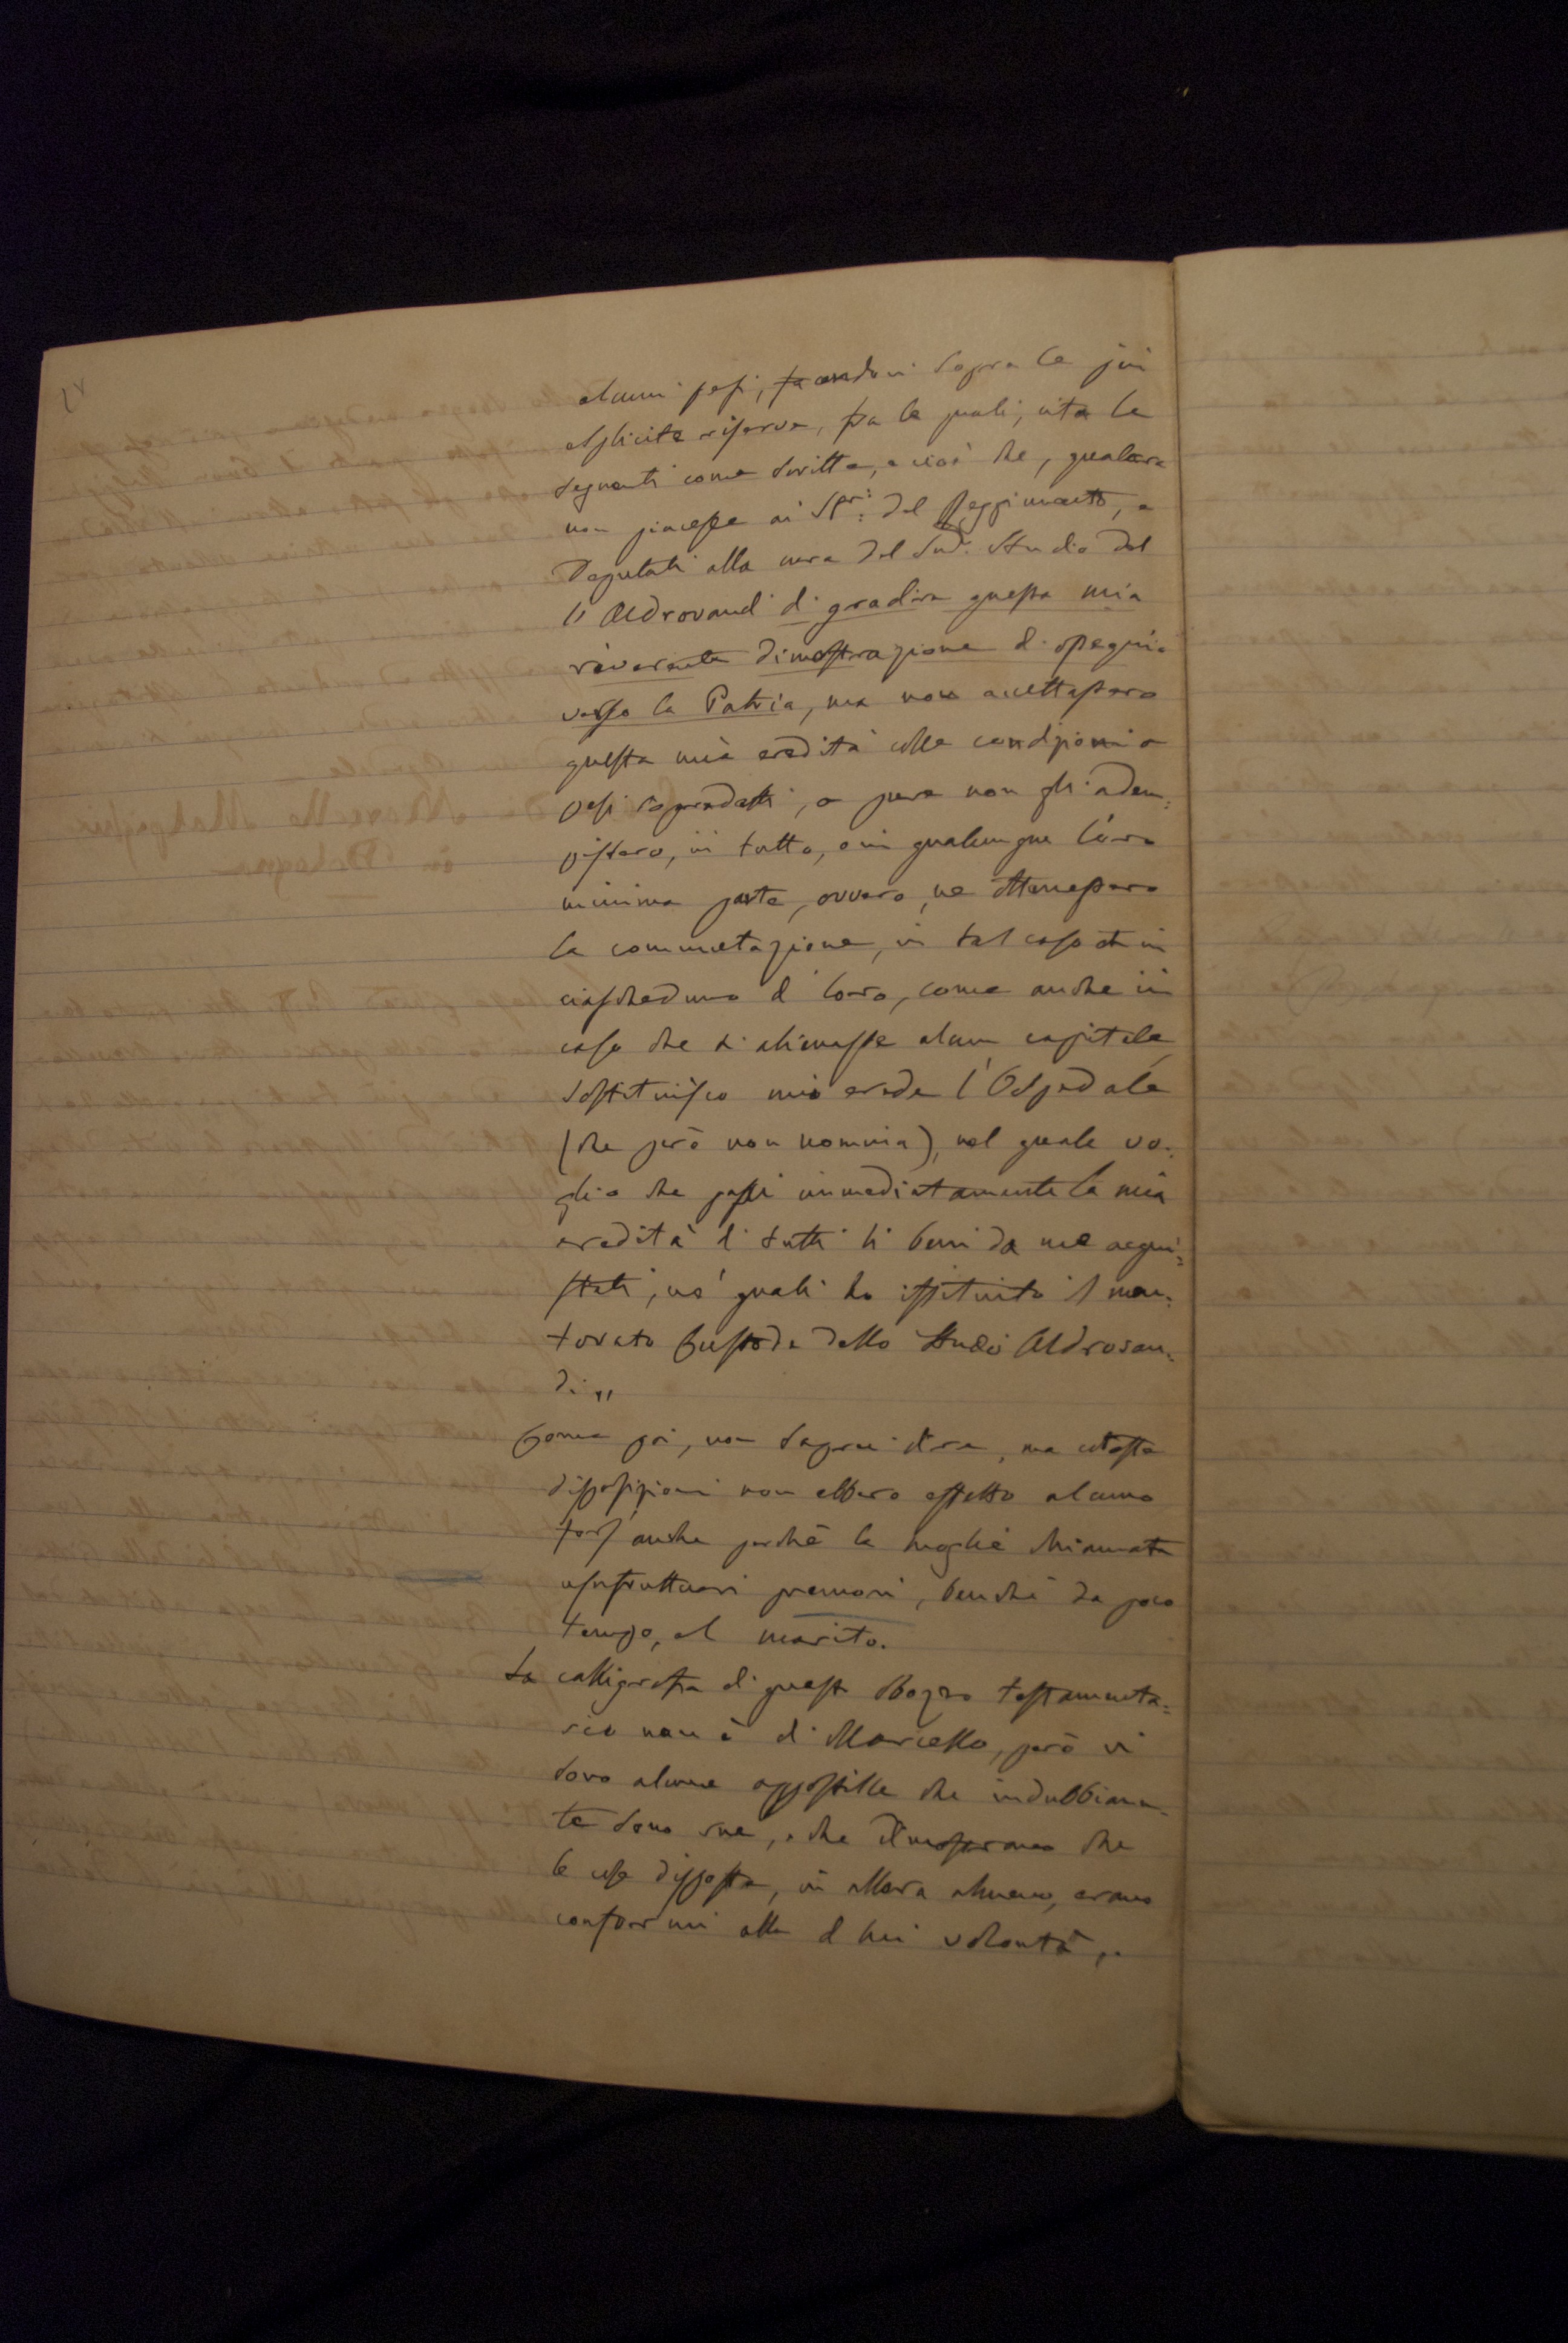 alcuni pesi, facendovi sopra le più
esplicite riserve, fra le quali, cito la
seguente come scritta, e cioè che, qualora
non piacesse ai SS.ri del Reggimento, e
Deputati alla cura del sud.o Studio del
l'Aldrovandi di gradire questa mia
riverente dimostrazione di ossequio
verso la Patria, ma non accettassero
questa mia eredità colle condizioni e
pesi sopradetti, o pure non gli adem=
pissero, in tutto, o in qualunque loro
minima parte, ovvero, ne ottenessero
la commutazione, in tal caso et in
ciascheduno di loro, come anche in
caso che si alienasse alcun capitale
sostituisco mio erede l'Ospedale
(che però non nomina), nel quale vo=
glio che passi immediatamente la mia
eredità di tutti li beni da me acqui=
stati, ne' quali ho istituito il men=
tovato Custode dello Studio Aldrovan=
di"
Come poi, non saprei dire, ma coteste
disposizioni non ebbero effetto alcuno
fors'anche perchè la moglie chiamata
usufruttuaria premorì, benchè da poco
tempo, al marito.
La calligrafia di questo sbozzo testamenta=
rio non è di Marcello, però vi
sono alcune appostille che indubbiamen=
te sono sue, e che dimostrano che
le cose disposte, in allora almeno, erano
conformi alla di lui volontà,